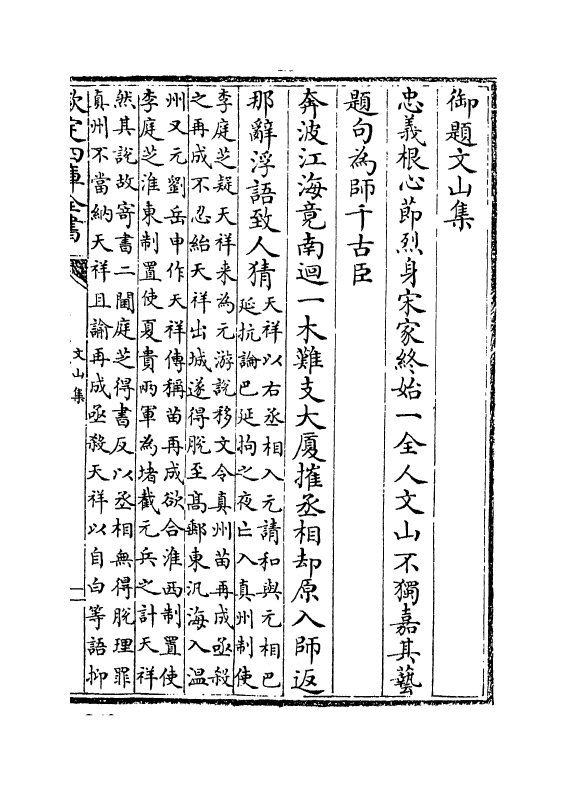 御題文山集
忠義根心節烈身宋家終始一全人文山不獨嘉其藝
題句為師千古臣
奔波江海竟南迴一木難支大厦摧丞相却原入師返
那辭浮語致人猜
天祥以右丞相入元請和與元相巴
延抗論巴延拘之夜亡入真州制使
李庭芝疑天祥来為元游說移文令真州苗再成亟殺
之再成不忍紿天祥出城遂得脫至髙郵東汎海入温
州又元劉岳申作天祥傳稱苗再成欲合淮西制置使
李庭芝淮東制置使夏貴兩軍為堵截元兵之計天祥
然其説故寄書二閫庭芝得書反以丞相無得脫理罪
真州不當納天祥且諭再成亟殺天祥以自白等語抑
欽定四庫全書
文山集
一